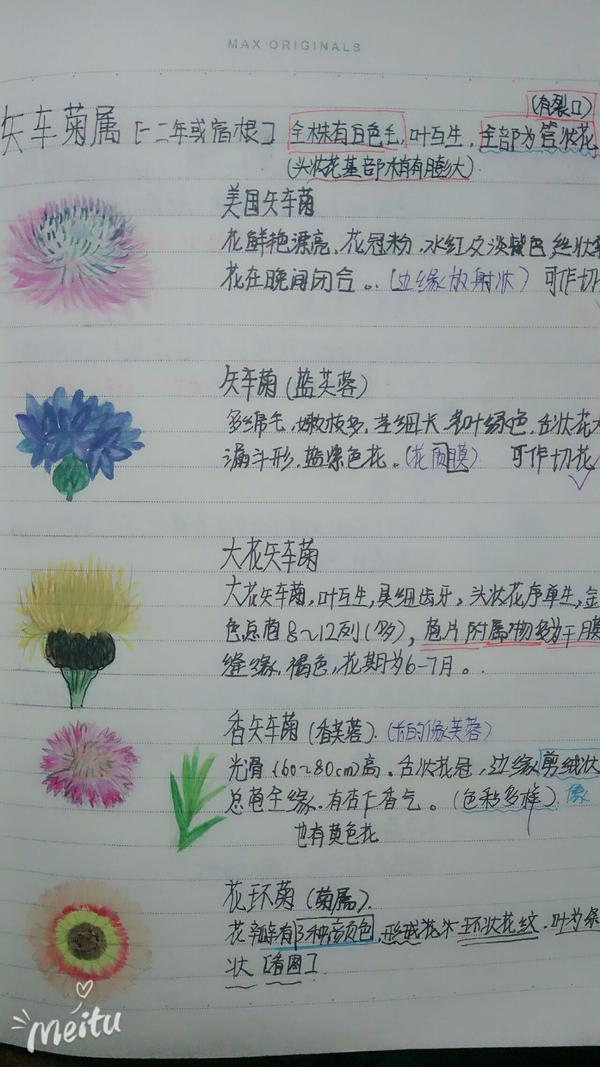 MAX ORIGINALS
(有裂口)
矢车菊属 [一二年或宿根] 全株有白色毛, 叶互生, 全部为管状花
(头状花基部稍有膨大)
美国矢车菊
花鲜艳漂亮、花冠粉、水红及淡紫色 丝状
花在晚间闭合。(边缘放射状) 可作切
矢车菊(蓝芙蓉)
多绵毛, 嫩枝多, 茎细长 叶绿色, 舌状花
漏斗形. 蓝紫色花。(花 膜) 可作切花
大花矢车菊
大花矢车菊, 叶互生, 具细齿牙, 头状花序单生, 金
色总苞8~12列(多), 苞片附属物多为干膜
缝缘. 褐色, 花期为6-7月。
香矢车菊(香芙蓉). (有的像芙蓉)
光滑(60~80cm)高. 舌状花冠, 边缘剪绒状
总苞全缘. 有杏仁香气。(色彩多样) 像
也有黄色花
花环菊(菊属).
花瓣有3种颜色, 形成花朵环状花纹. 叶为条
状 [看图]
Meitu